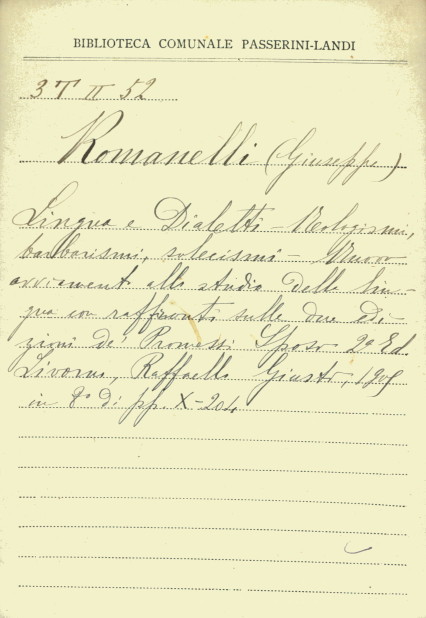 BIBLIOTECA COMUNALE PASSERINI-LANDI
3 T II 52
Romanelli (Giuseppe)
Lingua e Dialetti - Neologismi,
barbarismi, solecismi - Nuovo
avviamento allo studio della lin-
gua con raffronti sulle due edi-
zioni de' Promessi Sposi 2ª Ed.
Livorno, Raffaello Giusti, 1909
in 8° di pp. X-204